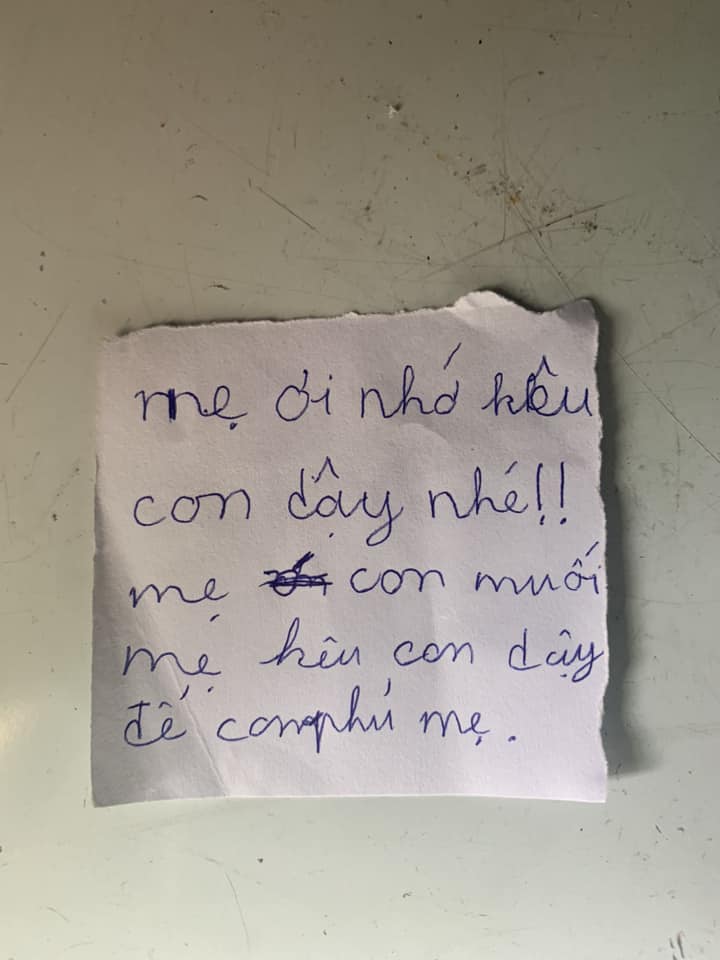 mẹ ơi nhớ kêu
con dậy nhé!!
mẹ con muối
mẹ kêu con dậy
để con phủ mẹ.